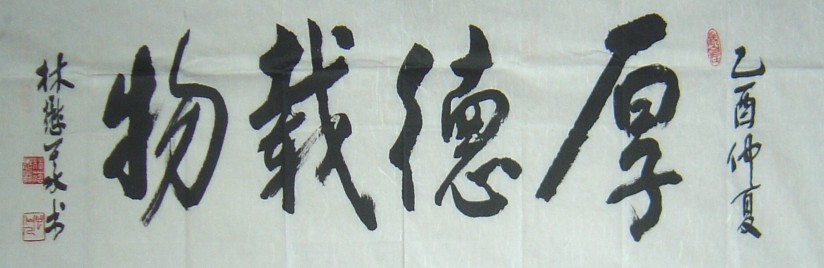 乙酉仲夏
厚德載物
林懋